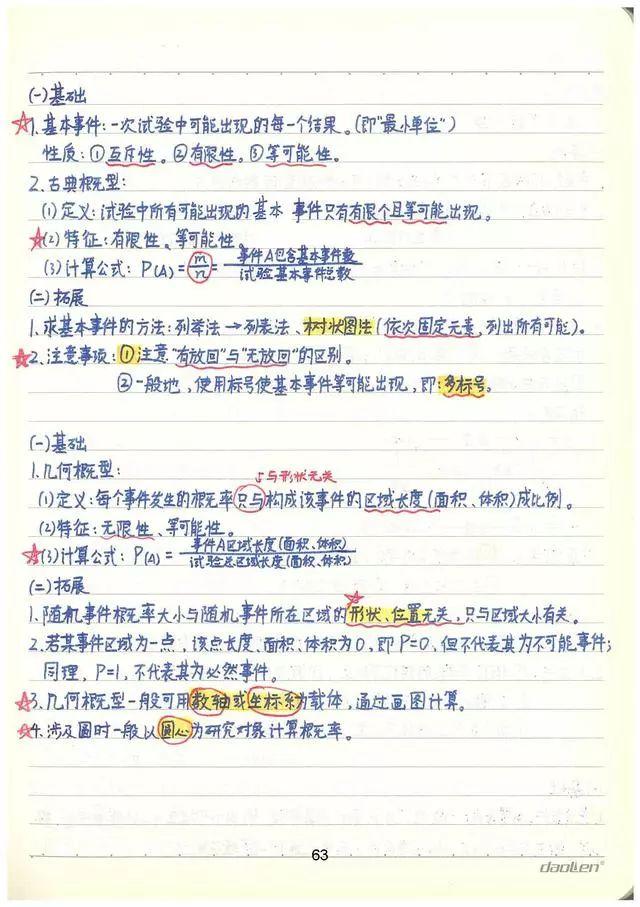 (一)基础
☆1.基本事件:一次试验中可能出现的每一个结果。(即"最小单位")
性质:①互斥性。②有限性。③等可能性。
2.古典概型:
(1)定义:试验中所有可能出现的基本 事件只有有限个且等可能出现。
☆(2)特征:有限性、等可能性。
(3)计算公式:P(A)=m/n=事件A包含基本事件数/试验基本事件总数
(二)拓展
1.求基本事件的方法:列举法→列表法、树状图法(依次固定元素,列出所有可能)。
☆2.注意事项:①注意"有放回"与"无放回"的区别。
②一般地,使用标号使基本事件等可能出现,即:多标号。
(一)基础
1.几何概型:
与形状无关
(1)定义:每个事件发生的概率只与构成该事件的区域长度(面积、体积)成比例。
(2)特征:无限性、等可能性。
☆(3)计算公式:P(A)=事件A区域长度(面积、体积)/试验总区域长度(面积、体积)
(二)拓展
1.随机事件概率大小与随机事件所在区域的形状、位置无关,只与区域大小有关。
2.若某事件区域为一点,该点长度、面积、体积为0,即P=0,但不代表其为不可能事件;
同理,P=1,不代表其为必然事件。
☆3.几何概型一般可用数轴或坐标系为载体,通过画图计算。
☆4.涉及圆时一般以圆心为研究对象计算概率。
63
daolen®